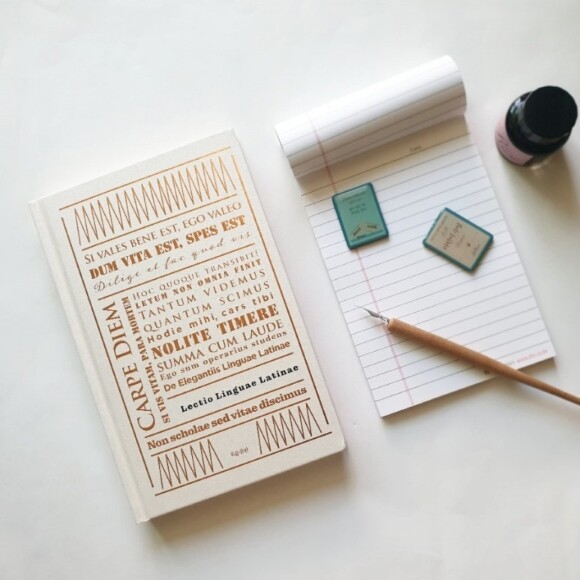 SI VALES BENE EST, EGO VALEO
DUM VITA EST, SPES EST
Dilige et fac quod vis
CARPE DIEM
SI VIS VITAM, PARA MORTEM
HOC QUOQUE TRANSIBIT!
LETUM NON OMNIA FINIT
TANTUM VIDEMUS
QUANTUM SCIMUS
Hodie mihi, cars tibi
NOLITE TIMERE
SUMMA CUM LAUDE
Ego sum operarius studens
De Elegantiis Linguae Latinae
Lectio Linguae Latinae
Non scholae sed vitae discimus